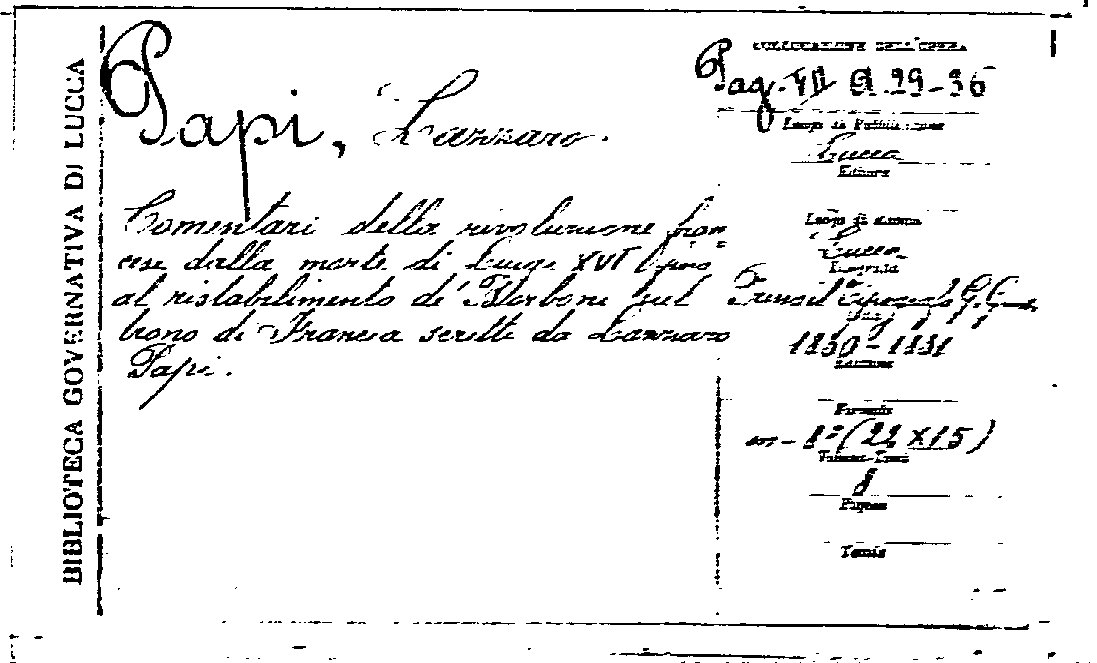 BIBLIOTECA GOVERNATIVA DI LUCCA
Papi, Lazzaro.
Comentari della rivoluzione fran=
cese dalla morte di Luigi XVI fino
al ristabilimento de' Borboni sul
trono di Francia scritti da Lazzaro
Papi.
COLLOCAZIONE DELL'OPERA
Pag. A. 29-36
Luogo di Pubblicazione
Lucca
Editore
Luogo di stampa
Lucca
Tipografia
1830-1831
Edizione
Formato
in-8º (22 X 15)
8
Pagine
Tavole